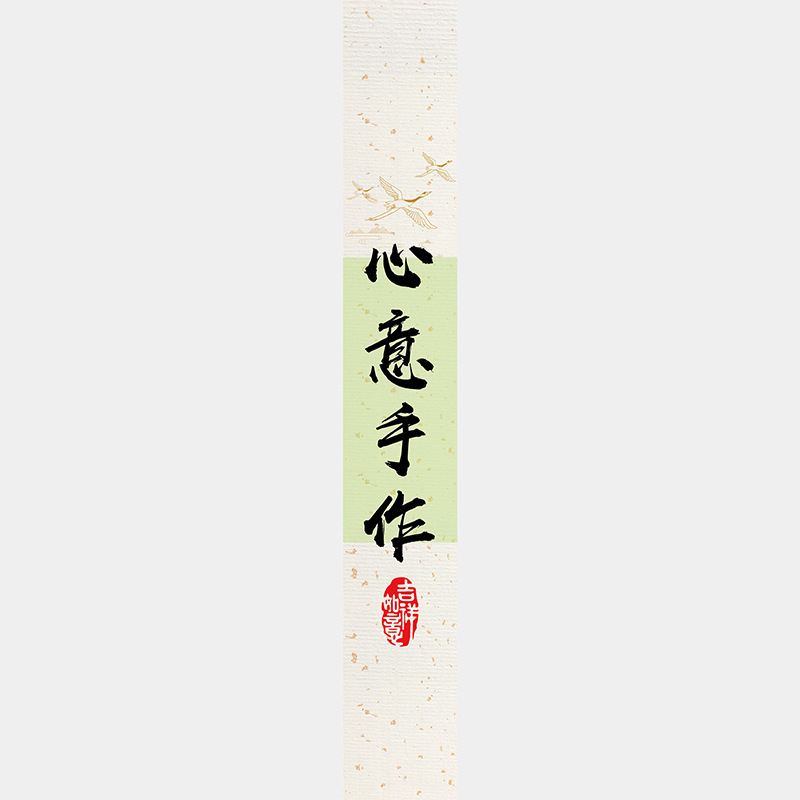 心意手作
吉祥如意